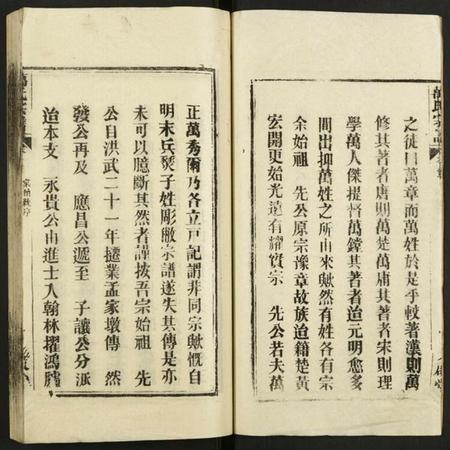 之徒曰萬章而萬姓於是乎較著漢則萬
修其著者唐則萬楚萬庸其著者宋則理
學萬人傑提督萬鏜其著者迨元明愈多
間出抑萬姓之所由來歟然有姓各有宗
余始祖 先公原宗豫章故族迨籍楚黃
宏開更始光遠有耀實宗 先公若夫萬
正萬秀爾乃各立戸記謂非同宗歟慨自
明末兵燹子姓彫敝宗譜遂失其傳是亦
未可以臆斷其然者謹按吾宗始祖 先
公自洪武二十一年擴業孟家墩傳 然
發公再及 應昌公遞至 子讓公分派
迨本支 永貴公由進士入翰林擢鴻臚
萬氏宗譜